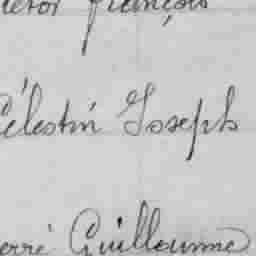 Victor François
Célestin Joseph
Pierre Guillaume